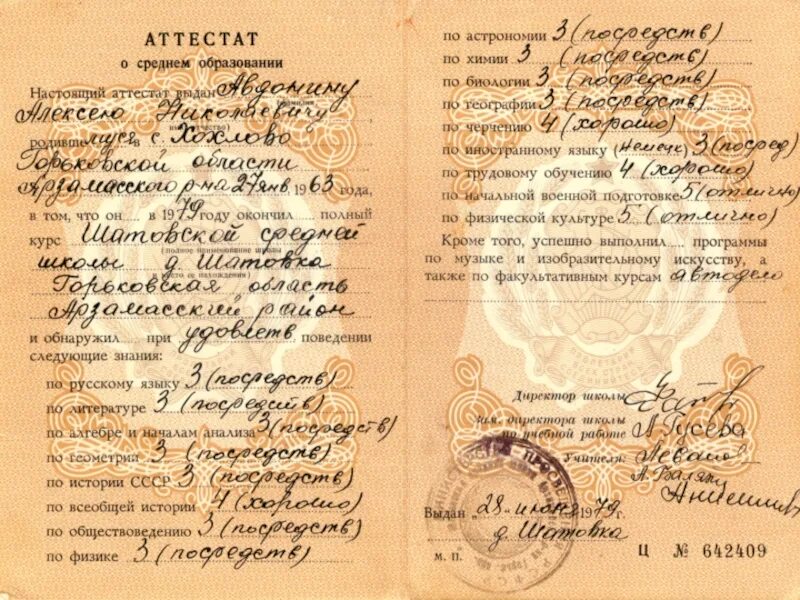 АТТЕСТАТ
о среднем образовании
Настоящий аттестат выдан Авдонину
Алексею Николаевичу
родившемуся в с. Хохлово
Горьковской области
Арзамасского р-на 27 янв 1963 года,
в том, что он в 1979 году окончил полный
курс Шатовской средней
(полное наименование школы
школы д. Шатовка
и место ее нахождения)
Горьковская область
Арзамасский район
и обнаружил при удовлетв. поведении
следующие знания:
по русскому языку 3 (посредств)
по литературе 3 (посредств)
по алгебре и началам анализа 3 (посредств)
по геометрии 3 (посредств)
по истории СССР 3 (посредств)
по всеобщей истории 4 (хорошо)
по обществоведению 3 (посредств)
по физике 3 (посредств)
по астрономии 3 (посредств)
по химии 3 (посредств)
по биологии 3 (посредств)
по географии 3 (посредств)
по черчению 4 (хорошо)
по иностранному языку (немецк) 3 (посред)
по трудовому обучению 4 (хорошо)
по начальной военной подготовке 5 (отлично)
по физической культуре 5 (отлично)
Кроме того, успешно выполнил программы
по музыке и изобразительному искусству, а
также по факультативным курсам автодело
Директор школы
Зам. директора школы
по учебной работе Л. Гусева
Учителя:
Выдан „28„ июня 1979 г.
д. Шатовка
М. П.
Ц № 642409